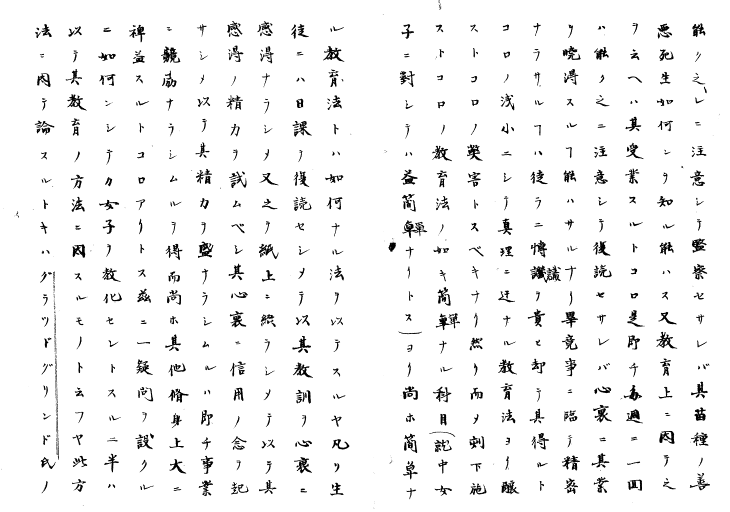 能ク之レニ注意シテ監察セサレバ其苗種ノ善
悪死生如何ンヲ知ル能ハス又教育上ニ因テ之
ヲ云ヘハ其受業スルトコロ是即チ毎週ニ一回
ハ能ク之ニ注意シテ復読セサレバ心裏ニ其業
ヲ暁得スルフ能ハサルナリ畢竟事ニ臨テ精密
ナラサルフハ徒ラニ博識ヲ貴ヒ却テ其得ルト
コロノ浅小ニシテ真理ニ迂ナル教育法ヨリ醸
ストコロノ弊害トスベキナリ然リ而メ刺下施
ストコロノ教育法ノ如キ簡単ナル科目(就中女
子ニ對シテハ益簡単ナリトス)ヨリ尚ホ簡単ナ
ル教育法トハ如何ナル法ヲ以テスルヤ凡ソ生
徒ニハ日課ヲ復読セシメテ以其教訓ヲ心裏ニ
感得ナラシメ又之ヲ紙上ニ綴ラシメテ以テ其
感得ノ精力ヲ試ムベシ其心裏ニ信用ノ念ヲ起
サシメ以テ其精力ヲ盛ナラシムルハ即チ事業
ニ競励ナラシムルヲ得而尚ホ其他脩身上大ニ
裨益スルトコロアリトス茲ニ一疑問ヲ設クル
ニ如何ンシテカ女子ヲ教化セントスルニ半ハ
以テ其教育ノ方法ニ因スルモノト云フヤ此方
法ニ因テ論スルトキハグラツドグリンド氏ノ